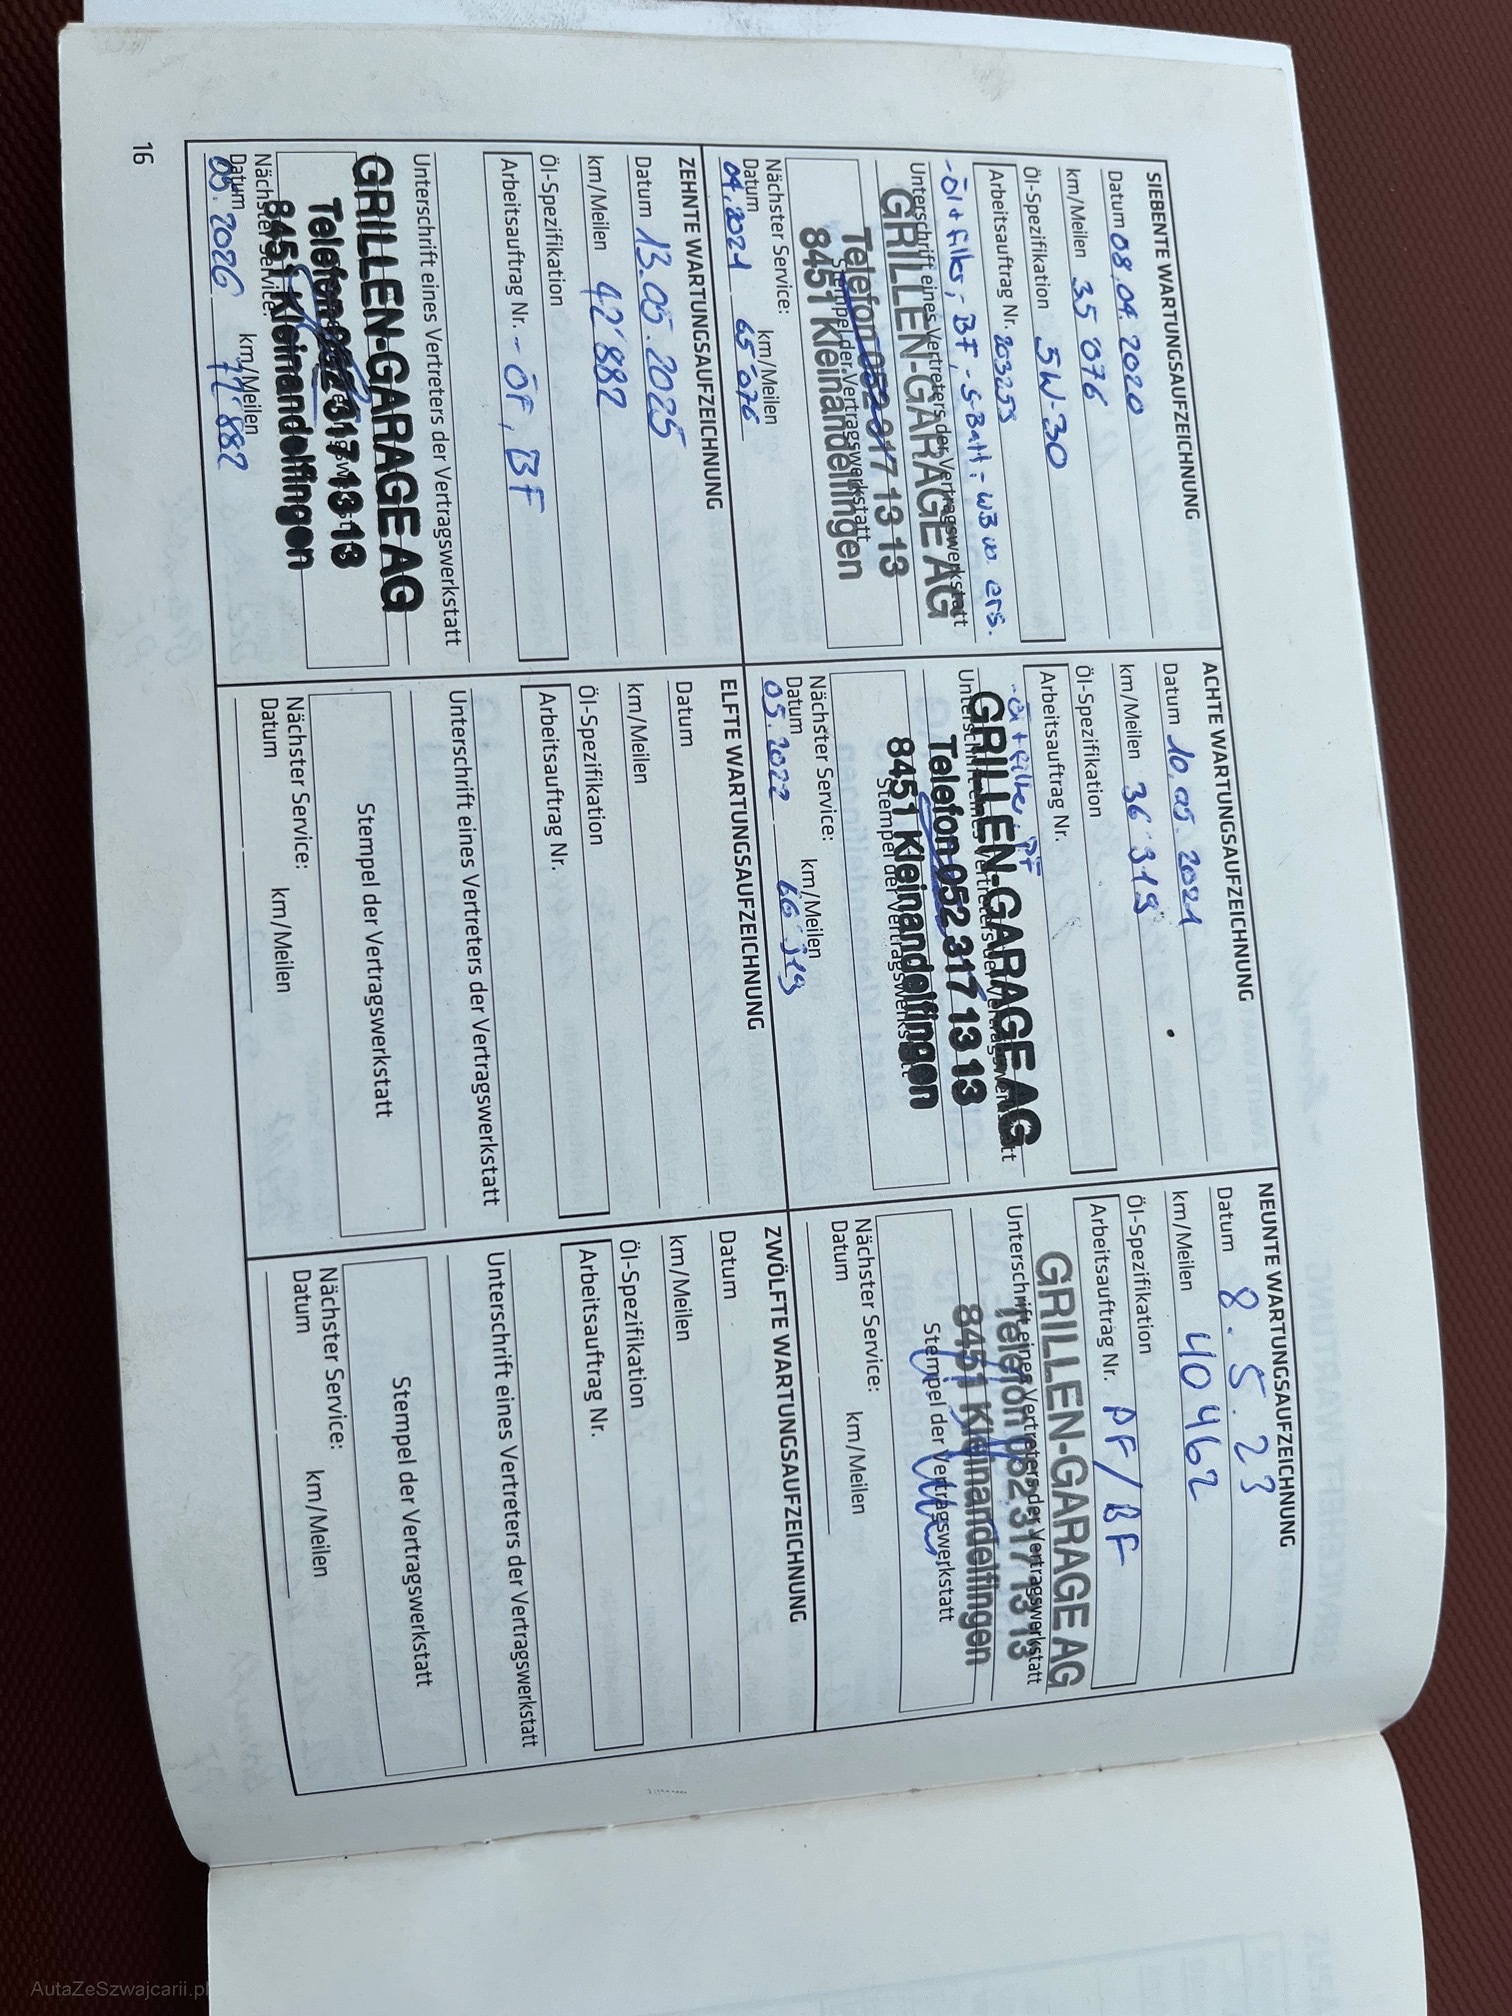 SIEBENTE WARTUNGSAUFZEICHNUNG
Datum 08.04.2020
km/Meilen 35'076
Öl-Spezifikation 5W-30
Arbeitsauftrag Nr. 203255
-Öl+filter, - BF, - S-Batt, - W3 ers.
Unterschrift eines Vertreters der Vertragswerkstatt
GRILLEN-GARAGE AG
Telefon 052 317 13 13
8451 Kleinandelfingen
Stempel der Vertragswerkstatt
Nächster Service:
Datum km/Meilen
04.2021 65'076
ACHTE WARTUNGSAUFZEICHNUNG
Datum 10.05.2021
km/Meilen 36'319
Öl-Spezifikation
Arbeitsauftrag Nr.
-Öl+filter, PF
Unterschrift eines Vertreters der Vertragswerkstatt
GRILLEN-GARAGE AG
Telefon 052 317 13 13
8451 Kleinandelfingen
Stempel der Vertragswerkstatt
Nächster Service:
Datum km/Meilen
05.2022 66'319
NEUNTE WARTUNGSAUFZEICHNUNG
Datum 8.5.23
km/Meilen 40462
Öl-Spezifikation
Arbeitsauftrag Nr. PF/BF
GRILLEN-GARAGE AG
Unterschrift eines Vertreters der Vertragswerkstatt
Telefon 052 317 13 13
8451 Kleinandelfingen
Stempel der Vertragswerkstatt
Nächster Service:
Datum km/Meilen
ZEHNTE WARTUNGSAUFZEICHNUNG
Datum 13.05.2025
km/Meilen 42'882
Öl-Spezifikation
Arbeitsauftrag Nr. - ÖF, BF
Unterschrift eines Vertreters der Vertragswerkstatt
GRILLEN-GARAGE AG
Telefon 052 317 13 13
8451 Kleinandelfingen
Nächster Service:
Datum km/Meilen
05.2026 72'882
ELFTE WARTUNGSAUFZEICHNUNG
Datum
km/Meilen
Öl-Spezifikation
Arbeitsauftrag Nr.
Unterschrift eines Vertreters der Vertragswerkstatt
Stempel der Vertragswerkstatt
Nächster Service:
Datum km/Meilen
ZWÖLFTE WARTUNGSAUFZEICHNUNG
Datum
km/Meilen
Öl-Spezifikation
Arbeitsauftrag Nr.
Unterschrift eines Vertreters der Vertragswerkstatt
Stempel der Vertragswerkstatt
Nächster Service:
Datum km/Meilen
16
AutaZeSzwajcarii.pl